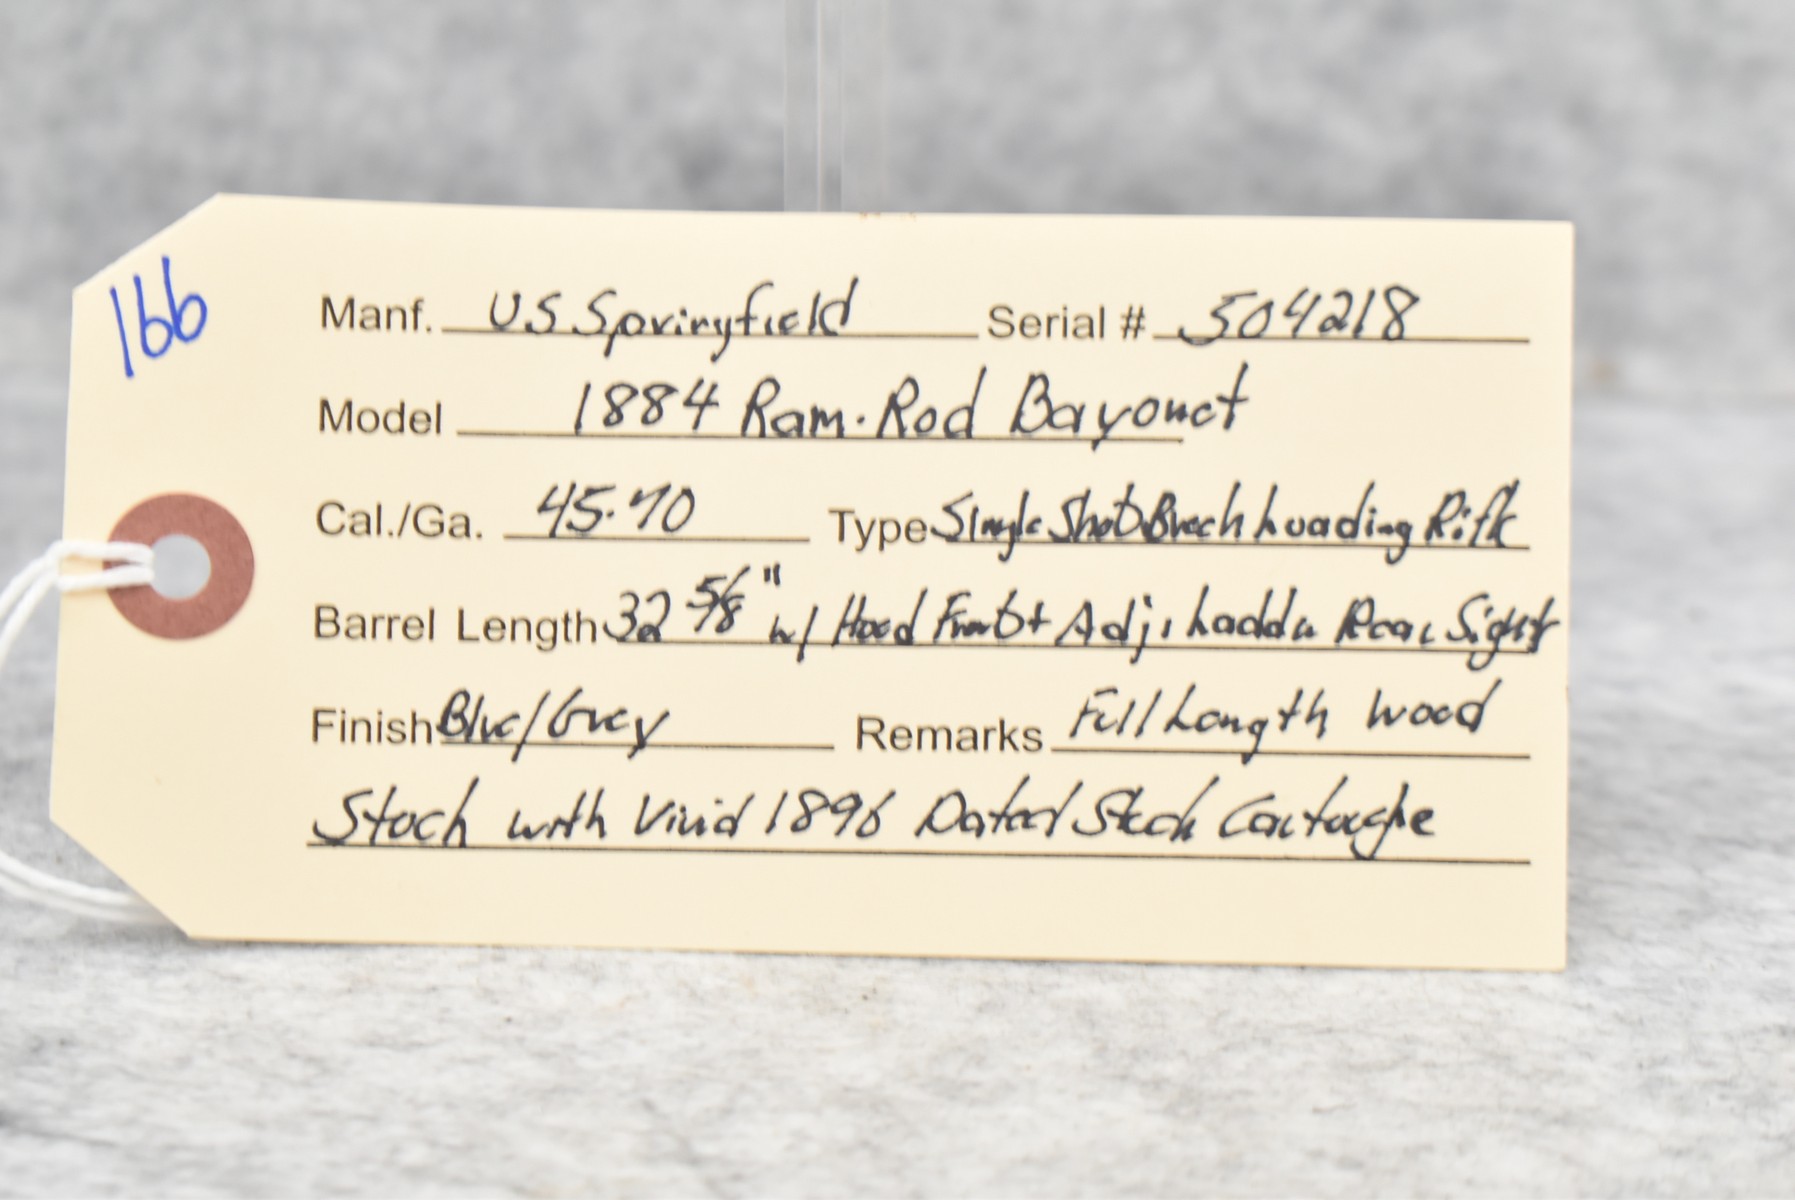 166
Manf. US Springfield Serial # 504218
Model 1884 Ram-Rod Bayonet
Cal./Ga. 45-70 Type Single Shot Breech Loading Rifle
Barrel Length 32 5/8" w/ Hood Front + Adj. Ladder Rear Sight
Finish Blue/Grey Remarks Full Length Wood
Stock with Vivid 1896 Dated Stock Cartouche